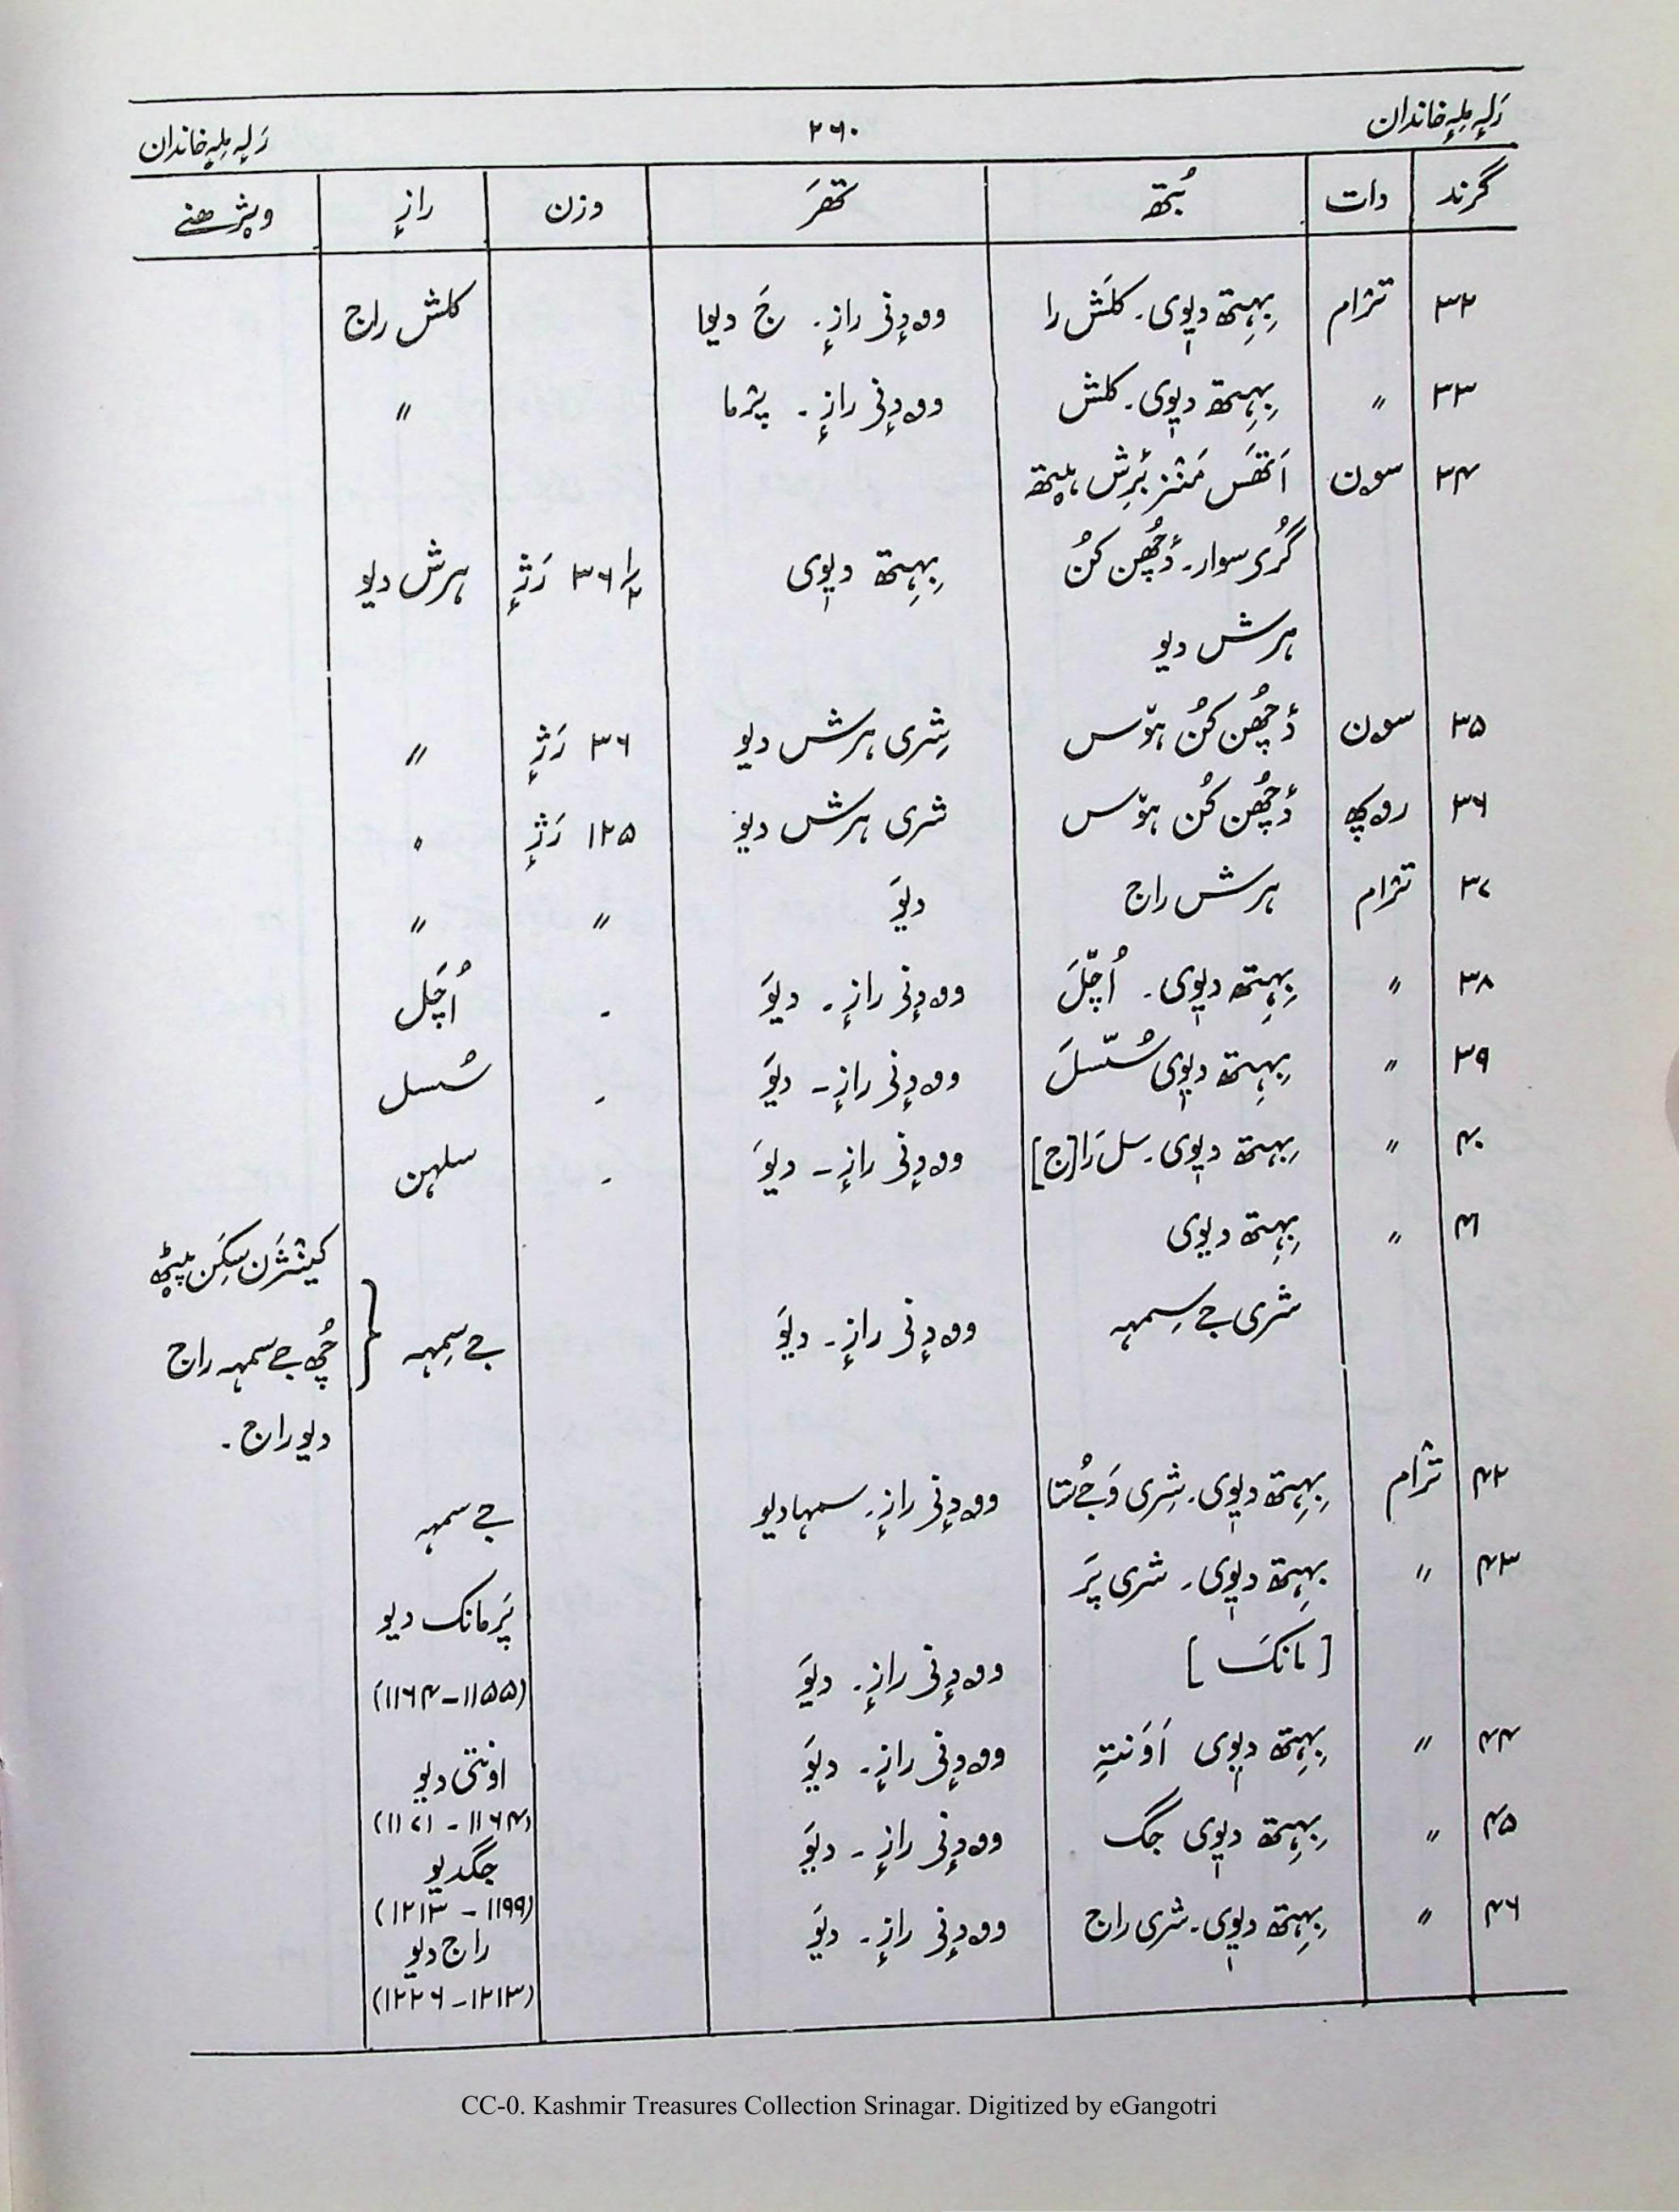 رَلہٕ مِلہٕ خاندان ۲۶۰ رَلہٕ مِلہٕ خاندان
گرند دات بُتھ تھَر وزن رازٕ ویژھنے
۳۲ ترٛام بِہِتھ دیوی۔ کلَش را وودٕنی رازٕ۔ جَ دیوا کلش راج
۳۳ " بِہِتھ دیوی۔ کلش وودٕنی رازٕ۔ پدٛما "
۳۴ سون اَتھَس مَنٛز بُرِش ہیٚتھ
گُری سوار۔ دٔچھُن کُن بِہِتھ دیوی ۳۶ ۱/۲ رَژٕ ہرش دیو
ہرش دیو
۳۵ سون دٔچھُن کُن ہوٚس شِری ہرش دیو ۳۶ رَژٕ "
۳۶ روپھ دٔچھُن کُن ہوٚس شری ہرش دیو ۱۲۵ رَژٕ "
۳۷ ترٛام ہرش راج دیوَ " "
۳۸ " بِہِتھ دیوی۔ اُچّلَ وودٕنی رازٕ۔ دیوَ - اُچَل
۳۹ " بِہِتھ دیوی سُسّلَ وودٕنی رازٕ۔ دیوَ - سُسل
۴۰ " بِہِتھ دیوی۔ سل رَا[ج] وودٕنی رازٕ۔ دیوَ - سلہن
۴۱ " بِہِتھ دیوی
شری جے سِمہہ وودٕنی رازٕ۔ دیوَ جے سِمہہ { کینٛژَن سِکَن پیٹھ
چُھ جے سمہہ راج
دیو راج۔
۴۲ ترٛام بِہِتھ دیوی۔ شِری وَجے ستا وودٕنی رازٕ۔ سمہا دیو جے سمہہ
۴۳ " بِہِتھ دیوی۔ شری پَر
[مانکَ] وودٕنی رازٕ۔ دیوَ پَرمانک دیو
(۱۱۵۵–۱۱۶۴)
۴۴ " بِہِتھ دیوی اَوَنتہِ وودٕنی رازٕ۔ دیوَ اونتی دیو
(۱۱۶۴–۱۱۷۱)
۴۵ " بِہِتھ دیوی جگ وودٕنی رازٕ۔ دیوَ جگدیو
(۱۱۹۹–۱۲۱۳)
۴۶ " بِہِتھ دیوی۔ شری راج وودٕنی رازٕ۔ دیوَ راج دیو
(۱۲۱۳–۱۲۲۶)
CC-0. Kashmir Treasures Collection Srinagar. Digitized by eGangotri